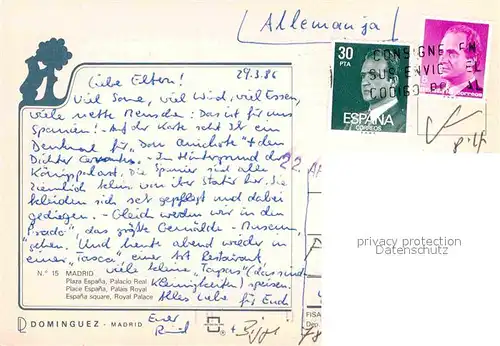 (Allemanja)
Liebe Eltern! 29.3.86
Viel Sonne, viel Wind, viel Essen,
viele nette Mensche: Das ist für uns
Spannien! Auf der Karte seht Ihr ein
Denkmal für "Don Quichote" + den
Dichter Cervantes. - Im Hintergrund der
Königspalast. Die Spanier sind alle
ziemlich klein, von aber statur her, Sie
kleiden sich sehr gepflegt und dabei
gediegen. - Gleich werden wir in den
"Prado", das größte Gemälde-Museum,
gehen. Und heute abend wieder in
einer "Tasca", einer Art Restaurant,
viele kleine "Tapas" (das sind
Kleinigkeiten) speisen.
Alles Liebe für Euch
Euer
N.º 15 MADRID
Plaza España, Palacio Real
Place España, Palais Royal
España square, Royal Palace
DOMINGUEZ - MADRID
30
PTA
ESPAÑA
CORREOS
CONSIGNE EN
SUS ENVIOS EL
CODIGO
correos
22 AP
privacy protection
Datenschutz
FISA
Dep.